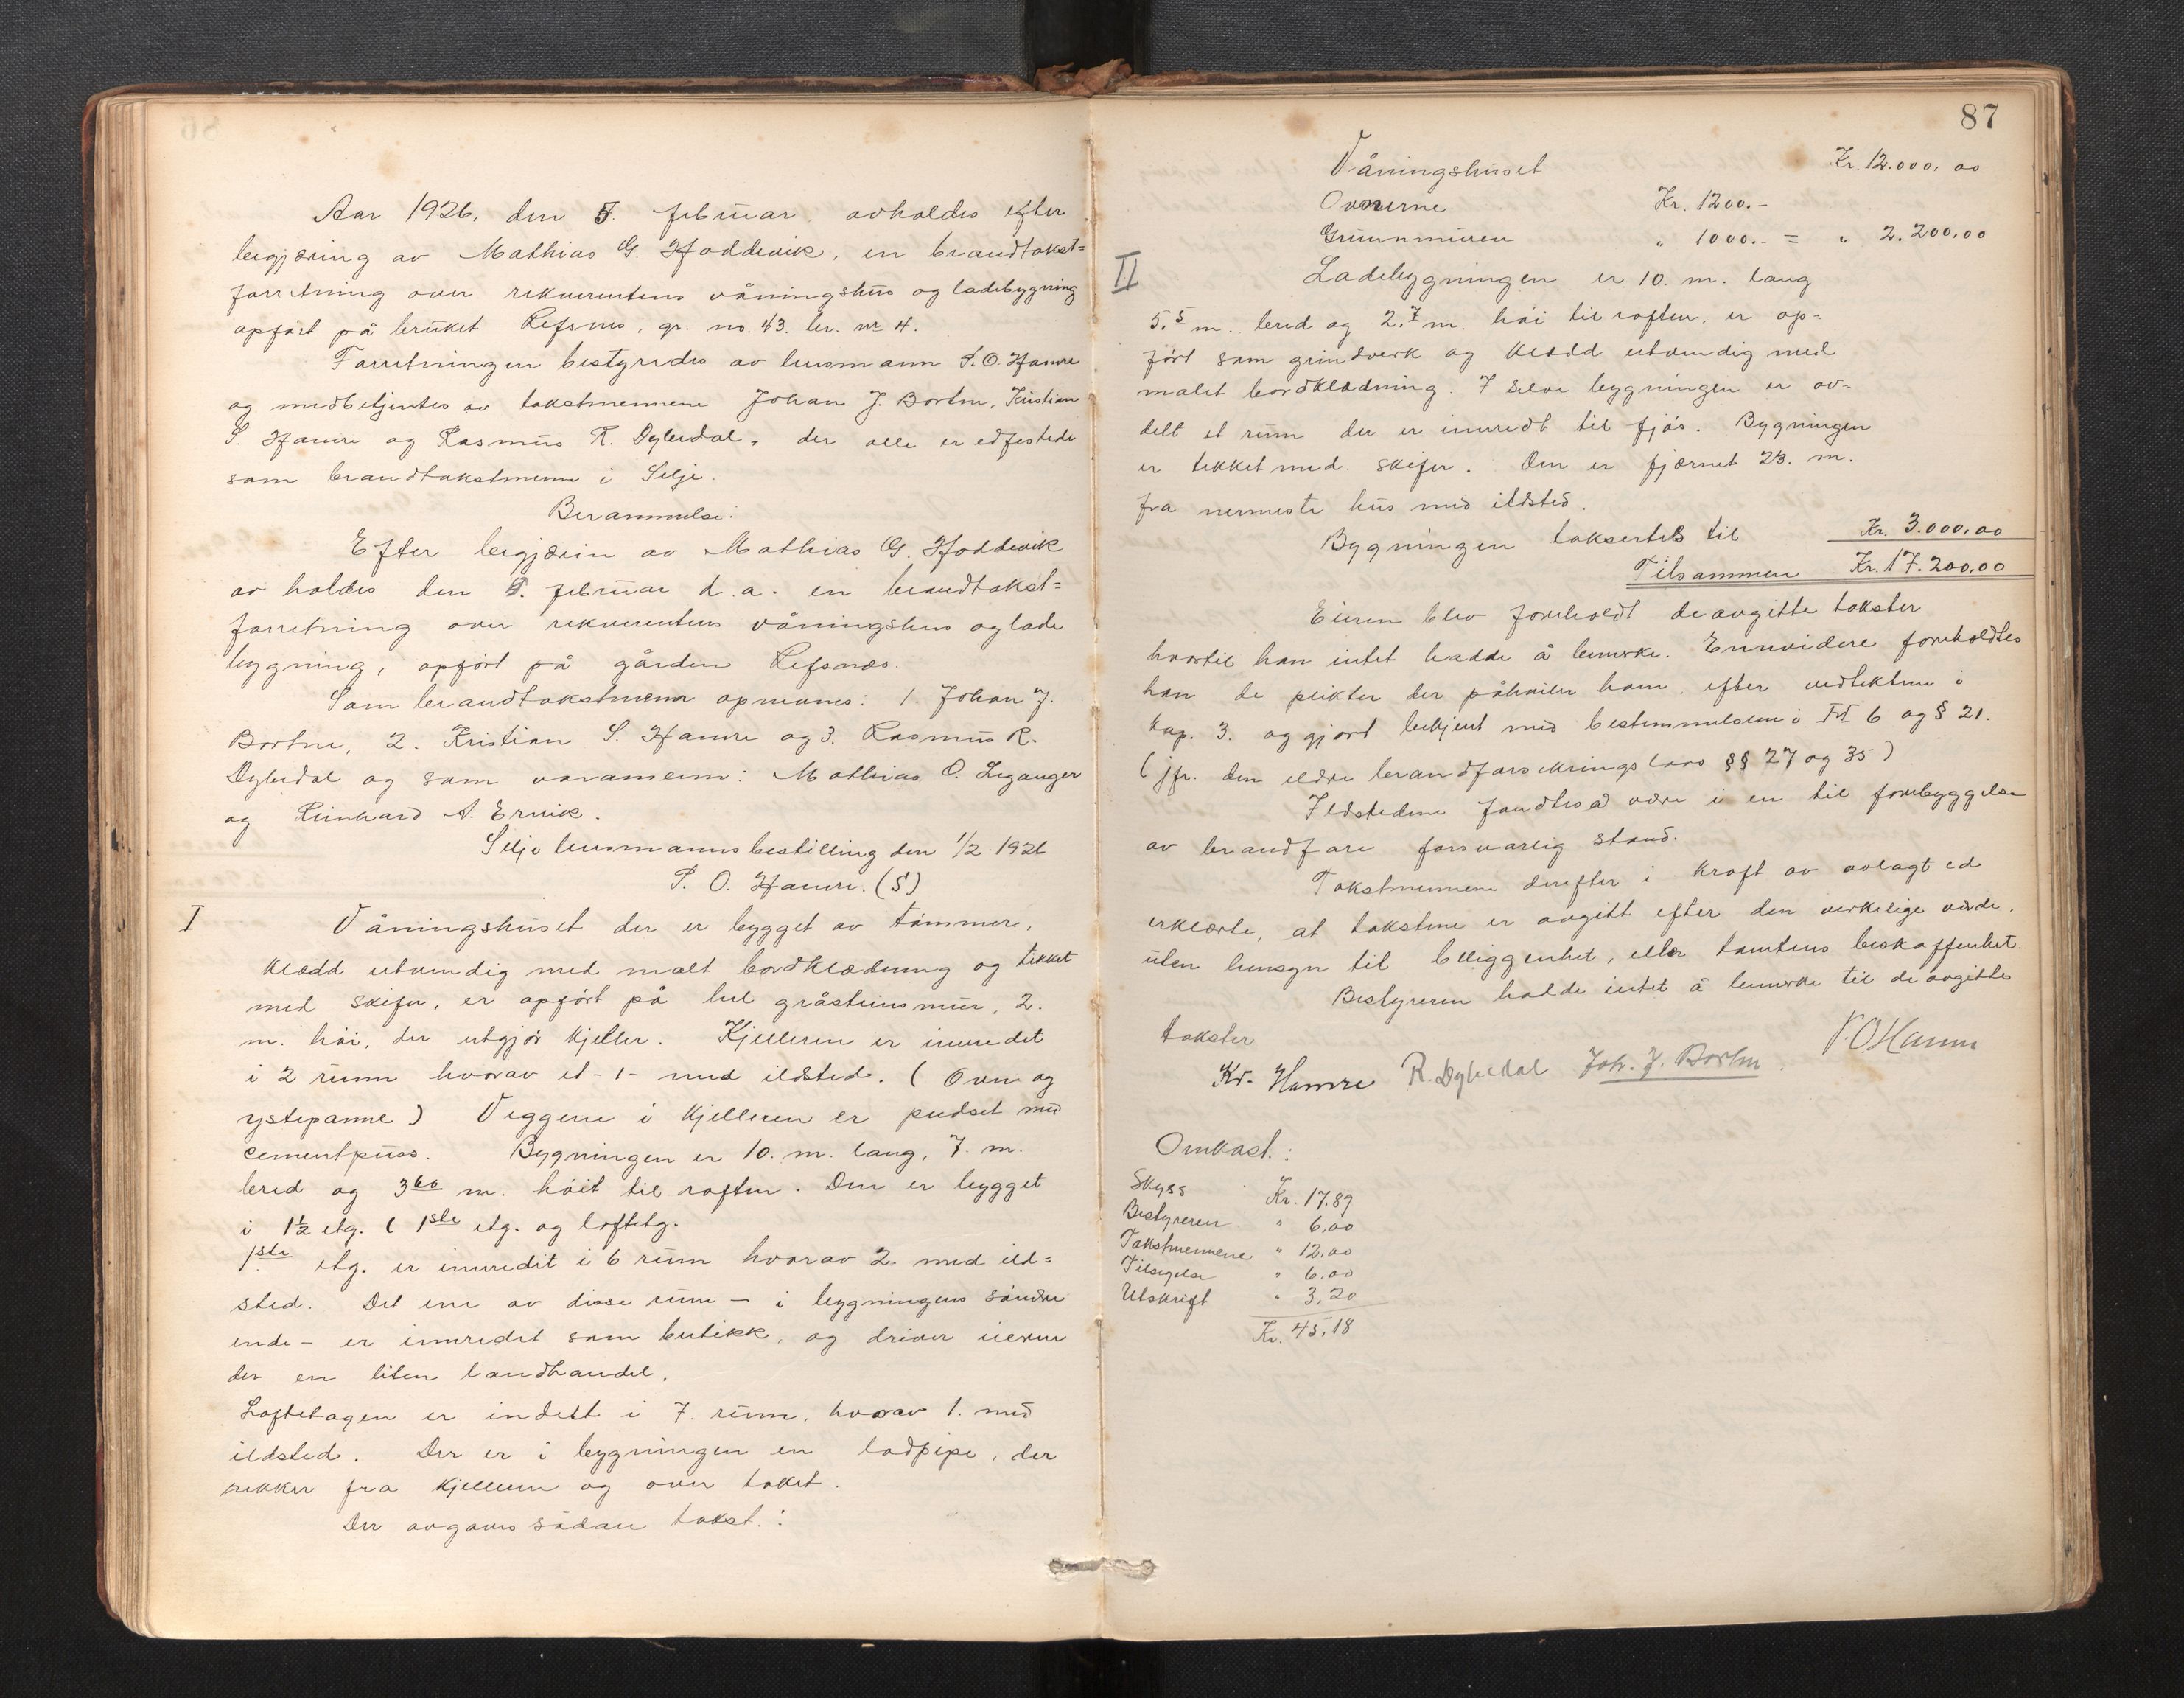 Aar 1926, den 5. februar, avholdes efter
begjæring av Mathias G. Hoddevik, en brandtakst=
forretning over rekvirentens våningshus og ladebygning
opført på bruket Refsnes, gr. no. 43. br. nr 4.
Forretningen bestyredes av lensmann P. O. Hamre
og medbetjentes av takstmennene Johan J. Bortne, Kristian
S. Hamre og Rasmus R. Dybedal, der alle er edfestede
som brandtakstmenn i Selje.
Berammelse:
Efter begjærin av Mathias G. Hoddevik
av holdes den 5. februar d. a. en brandtakst=
forretning over rekvirentens våningshus og lade
bygning, opført på gården Refsnes.
Som brandtakstmenn opnevnes: 1. Johan J.
Bortne, 2. Kristian S. Hamre og 3. Rasmus R.
Dybedal og som varamenn: Mathias O. Leganger
og Reinhard A. Ervik.
Selje lensmannsbestilling den 1/2 1926
P. O. Hamre. (S)
I Våningshuset der er bygget av tømmer,
klædd utvendig med malt bordklædning og tekket
med skifer, er opført på hel gråsteinsmur, 2.
m. høi, der utgjør kjeller. Kjelleren er innredet
i 2 rum hvorav et - 1 - med ildsted. (Ovn og
ystepanne) Veggene i kjelleren er pudset med
cementpuss. Bygningen er 10. m. lang, 7. m.
bred og 3 60 m. høit til raften. Den er bygget
i 1½ etg. (1ste etg. og loftetg.
1ste etg. er innredet i 6 rum hvorav 2 med ild=
sted. Det ene av disse rum – i bygningens søndre
ende – er innredet som butikk, og driver eieren
der en liten landhandel.
Loftetagen er indelt i 7. rum, hvorav 1. med
ildsted. Der er i bygningen en lodpipe, der
rekker fra kjelleren og over taket.
Der avgaves sådan takst:
87
Våningshuset Kr. 12.000,00
Ovnerne Kr. 1200.-
Grunnmuren " 1000.- = " 2.200,00
II Ladebygningen er 10. m. lang
5,5 m. bred og 2,7 m. høi til raften, er op=
ført som grindverk og klædd utvendig med
malet bordklædning. I selve bygningen er av=
delt et rum der er innredt til fjøs. Bygningen
er tekket med skifer. Den er fjærnet 23. m.
fra nermeste hus med ildsted.
Bygningen taksertes til Kr. 3.000,00
Tilsammen Kr. 17.200,00
Eieren blev foreholdt de avgitte takster
hvortil han intet hadde å bemerke. Ennvidere foreholdtes
han de plikter der påhviler ham efter vedtektene i
kap. 3. og gjort bekjent med bestemmelsene i § 6 og § 21.
(jfr. den eldre brandforsikringslovs §§ 27 og 35)
Ildstedene fandtes å være i en til forebyggelse
av brandfare forsvarlig stand.
Takstmennene derefter i kraft av avlagt ed
erklærte, at takstene er avgitt efter den verkelige verde,
uten hensyn til beliggenhet, eller tomtens beskaffenhet.
Bestyreren hadde intet å bemerke til de avgitte
takster
Kr. Hamre R. Dybedal Joh. J. Bortne P.O. Hamre
Omkost.:
Skyss Kr. 17.89
Bestyreren " 6,00
Takstmennene " 12,00
Tilsigelse " 6,00
Utskrift " 3,20
Kr. 45,18